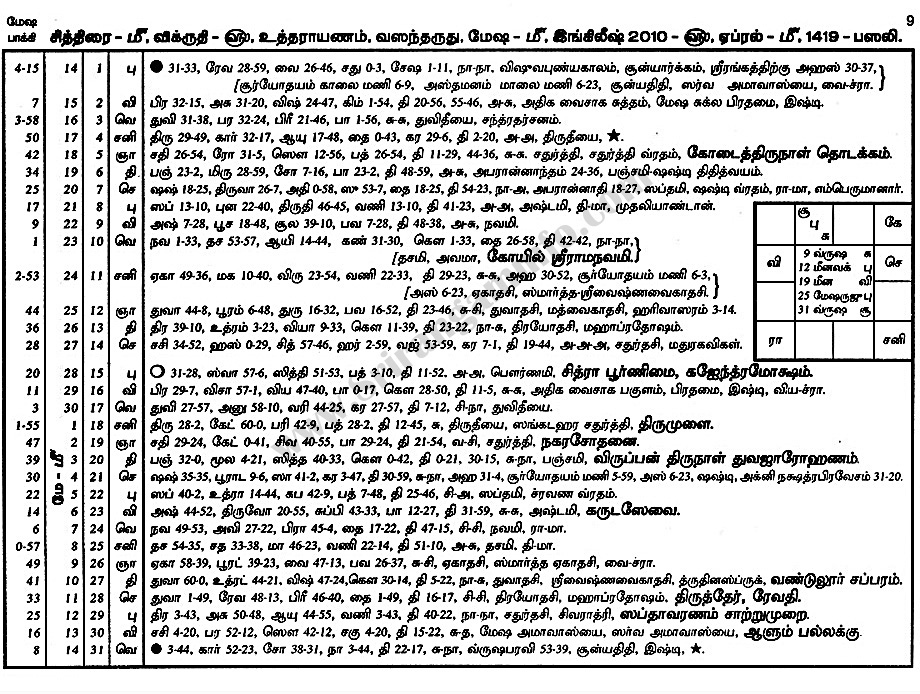 மேஷ 9
பாக்கி சித்திரை - மீ, விக்ருதி - ௵, உத்தராயணம், வஸந்தருது, மேஷ - மீ, இங்கிலீஷ் 2010 - ௵, ஏப்ரல் - மீ, 1419 - பஸலி.
4-15 14 1 பு ● 31-33, ரேவ 28-59, வை 26-46, சது 0-3, சேஷ 1-11, நா-நா, விஷுவபுண்யகாலம், சூன்யார்க்கம், ஸ்ரீரங்கத்திற்கு அஹஸ் 30-37,
[சூர்யோதயம் காலை மணி 6-9, அஸ்தமனம் மாலை மணி 6-23, சூன்யதிதி, ஸர்வ அமாவாஸ்யை, வை-ச்ரா.
7 15 2 வி பிர 32-15, அசு 31-20, விஷ் 24-47, கிம் 1-54, தி 20-56, 55-46, அ-சு, அதிக வைசாக சுத்தம், மேஷ சுக்ல பிரதமை, இஷ்டி.
3-58 16 3 வெ துவி 31-38, பர 32-24, பிரீ 21-46, பா 1-56, சு-சு, துவிதீயை, சந்த்ரதர்சனம்.
50 17 4 சனி திரு 29-49, கார் 32-17, ஆயு 17-48, தை 0-43, கர 29-6, தி 2-20, அ-அ, திருதீயை, ★.
42 18 5 ஞா சதி 26-54, ரோ 31-5, ஸௌ 12-56, பத் 26-54, தி 11-29, 44-36, சு-சு. சதுர்த்தி, சதுர்த்தி வ்ரதம், கோடைத்திருநாள் தொடக்கம்.
34 19 6 தி பஞ் 23-2, மிரு 28-59, சோ 7-16, பா 23-2, தி 48-59, அ-சு, அபரான்னாந்தம் 24-36, பஞ்சமி-ஷஷ்டி திதித்வயம்.
25 20 7 செ ஷஷ் 18-25, திருவா 26-7, அதி 0-58, ஸு 53-7, தை 18-25, தி 54-23, நா-அ, அபரான்னாதி 18-27, ஸப்தமி, ஷஷ்டி வ்ரதம், ரா-மா, எம்பெருமானார்.
17 21 8 பு ஸப் 13-10, புன 22-40, திருதி 46-45, வணி 13-10, தி 41-23, அ-அ, அஷ்டமி, தி-மா, முதலியாண்டான்.
9 22 9 வி அஷ் 7-28, பூச 18-48, சூல 39-10, பவ 7-28, தி 48-38, அ-சு, நவமி.
1 23 10 வெ நவ 1-33, தச 53-57, ஆயி 14-44, கண் 31-30, கௌ 1-33, தை 26-58, தி 42-42, நா-நா,
[தசமி, அவமா, கோயில் ஸ்ரீராமநவமி.
2-53 24 11 சனி ஏகா 49-36, மக 10-40, விரு 23-54, வணி 22-33, தி 29-23, சு-சு, அஹ 30-52, சூர்யோதயம் மணி 6-3,
[அஸ் 6-23, ஏகாதசி, ஸ்மார்த்த-ஸ்ரீவைஷ்ணவைகாதசி.
44 25 12 ஞா துவா 44-8, பூரம் 6-48, துரு 16-32, பவ 16-52, தி 23-46, சு-சி, துவாதசி, மத்வைகாதசி, ஹரிவாஸரம் 3-14.
36 26 13 தி திர 39-10, உத்ரம் 3-23, வியா 9-33, கௌ 11-39, தி 23-22, நா-சு, திரயோதசி, மஹாப்ரதோஷம்.
28 27 14 செ சசி 34-52, ஹஸ் 0-29, சித் 57-46, ஹர் 2-59, வஜ் 53-59, கர 7-1, தி 19-44, அ-அ-அ, சதுர்தசி, மதுரகவிகள்.
20 28 15 பு ○ 31-28, ஸ்வா 57-6, ஸித்தி 51-53, பத் 3-10, தி 11-52. அ-அ, பௌர்ணமி, சித்ரா பூர்ணிமை, கஜேந்த்ரமோக்ஷம்.
11 29 16 வி பிர 29-7, விசா 57-1, விய 47-40, பா 0-17, கௌ 28-50, தி 11-5, சு-சு, அதிக வைசாக பகுளம், பிரதமை, இஷ்டி, விய-ச்ரா.
3 30 17 வெ துவி 27-57, அனு 58-10, வரி 44-25, கர 27-57, தி 7-12, சி-நா, துவிதீயை.
1-55 1 18 சனி திரு 28-2, கேட் 60-0, பரி 42-9, பத் 28-2, தி 12-45, சு, திருதீயை, ஸங்கடஹர சதுர்த்தி, திருமுளை.
47 2 19 ஞா சதி 29-24, கேட் 0-41, சிவ 40-55, பா 29-24, தி 21-54, வ-சி, சதுர்த்தி, நகரசோதனை.
39 3 20 தி பஞ் 32-0, மூல 4-21, ஸித்த 40-33, கௌ 0-42, தி 0-21, 30-15, சு-நா, பஞ்சமி, விருப்பன் திருநாள் துவஜாரோஹணம்.
30 மே - மீ 4 21 செ ஷஷ் 35-35, பூராட 9-6, ஸா 41-2, கர 3-47, தி 30-59, சு-நா, அஹ 31-4, சூர்யோதயம் மணி 5-59, அஸ் 6-23, ஷஷ்டி, அக்னி நக்ஷத்ரபிரவேசம் 31-20.
22 5 22 பு ஸப் 40-2, உத்ரா 14-44, சுப 42-9, பத் 7-48, தி 25-46, சி-அ, ஸப்தமி, ச்ரவண வ்ரதம்.
14 6 23 வி அஷ் 44-52, திருவோ 20-55, சுப்பி 43-33, பா 12-27, தி 31-59, சு-சு, அஷ்டமி, கருடஸேவை.
6 7 24 வெ நவ 49-53, அவி 27-22, பிரா 45-4, தை 17-22, தி 47-15, சி-சி, நவமி, ரா-மா.
0-57 8 25 சனி தச 54-35, சத 33-38, மா 46-23, வணி 22-14, தி 51-10, அ-சு, தசமி, தி-மா.
49 9 26 ஞா ஏகா 58-39, பூரட் 39-23, வை 47-13, பவ 26-37, சு-சி, ஏகாதசி, ஸ்மார்த்த ஏகாதசி, வை-ச்ரா.
41 10 27 தி துவா 60-0, உத்ரட் 44-21, விஷ் 47-24, கௌ 30-14, தி 5-22, நா-சு, துவாதசி, ஸ்ரீவைஷ்ணவைகாதசி, த்ருதினஸ்ப்ருக், வண்டுலூர் சப்பரம்.
33 11 28 செ துவா 1-49, ரேவ 48-13, பிரீ 46-40, தை 1-49, தி 16-17, சி-சி, திரயோதசி, மஹாப்ரதோஷம். திருத்தேர், ரேவதி.
25 12 29 பு திர 3-43, அசு 50-48, ஆயு 44-55, வணி 3-43, தி 40-22, நா-நா, சதுர்தசி, சிவராத்ரி, ஸப்தாவரணம் சாற்றுமுறை.
16 13 30 வி சசி 4-20, பர 52-12, ஸௌ 42-12, சகு 4-20, தி 15-22, சு-த, மேஷ அமாவாஸ்யை, ஸர்வ அமாவாஸ்யை, ஆளும் பல்லக்கு.
8 14 31 வெ ● 3-44, கார் 52-23, சோ 38-31, நா 3-44, தி 22-17, சு-நா, வ்ருஷபரவி 53-39, சூன்யதிதி, இஷ்டி, ★.
சூ பு சு கே
வி செ
9 வ்ருஷ சு
12 மீனவக் பு
19 மீன வி
25 மேஷருஜு பு
31 வ்ருஷ சூ
ரா சனி